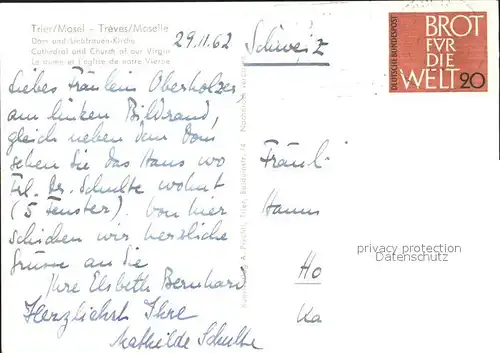 Trier/Mosel - Trèves/Moselle
Dom und Liebfrauen-Kirche
Cathedral and Church of our Virgin
Le dome et l'église de notre Vierge
29.11.62
Liebes Fräulein Oberholzer
am linken Bildrand,
gleich neben dem Dom
sehen Sie das Haus wo
Frl. Dr. Schulte wohnt
(5 Fenster). Von hier
schicken wir herzliche
Grüsse an die
Ihre Elsbeth Bernhard
Herzlichst Ihre
Mathilde Schulte
Schweiz
Fräul
Hanns
Ho
Ka
DEUTSCHE BUNDESPOST
BROT
FÜR
DIE
WELT
20
privacy protection
AK-Ansichtskarten.de